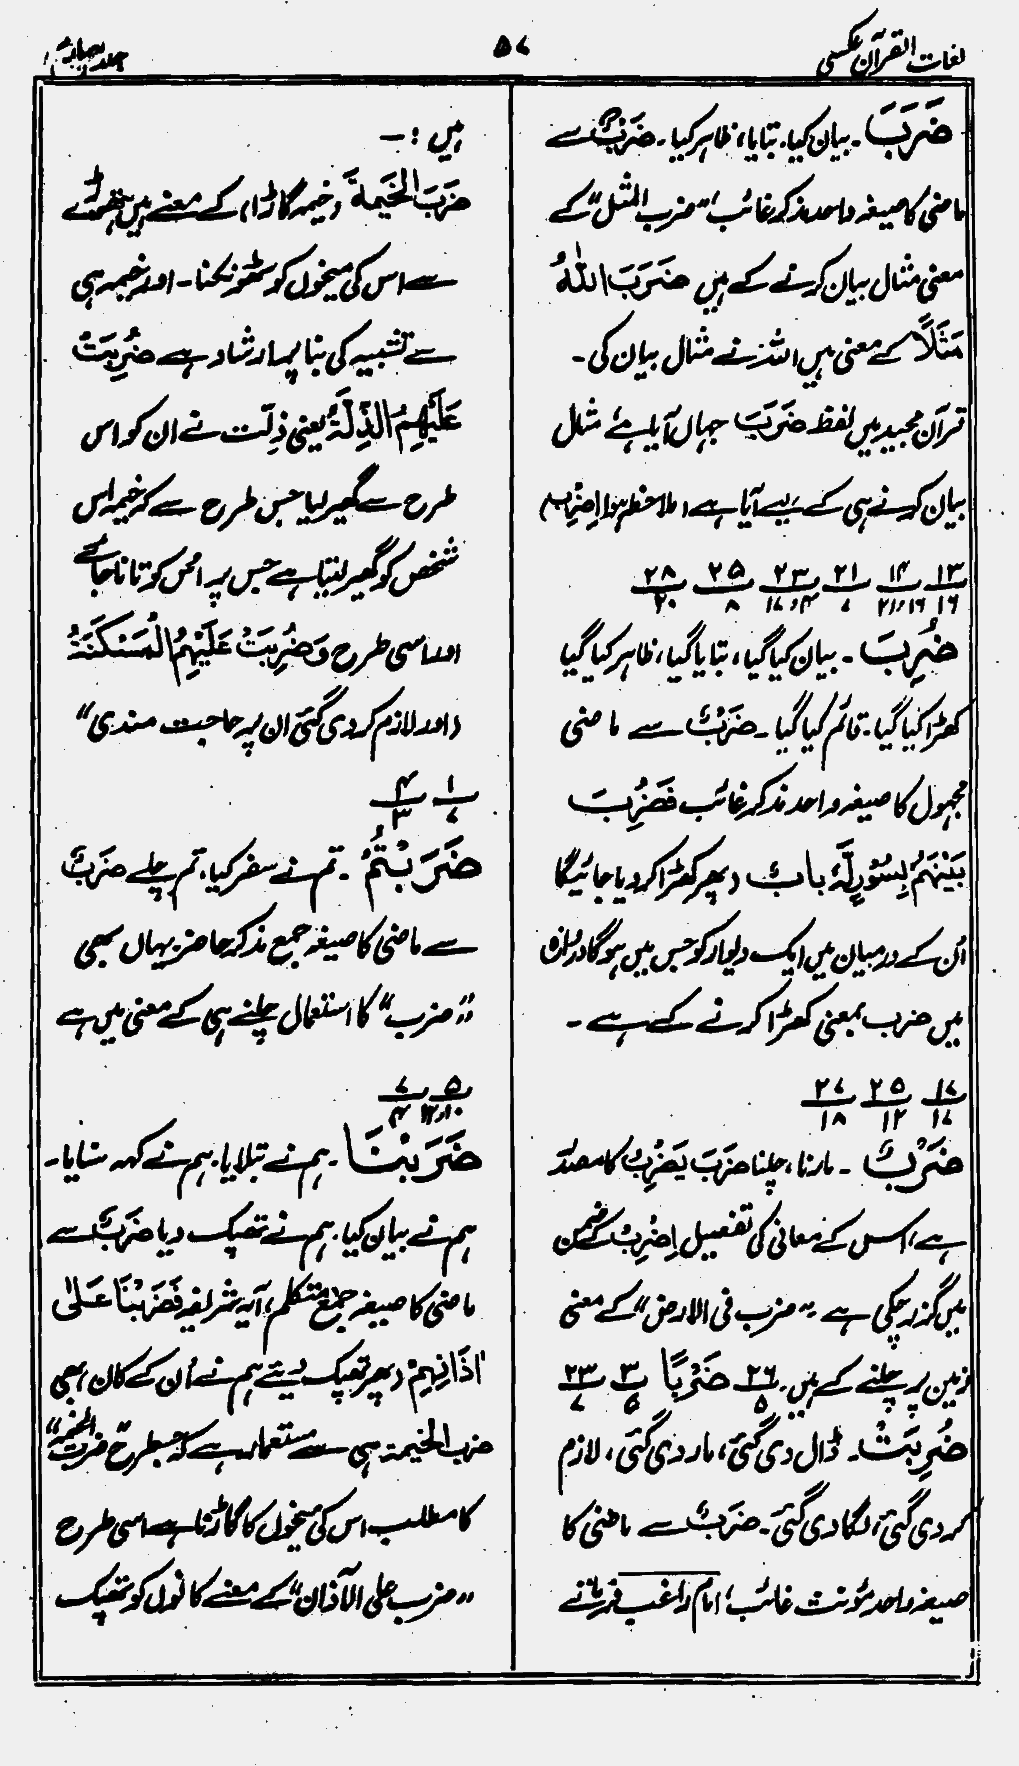 لغات القرآن عکسی
۵۷
جلد چہارم
ضَرَبَ ۔ بیان کیا، بتایا، ظاہر کیا۔ ضَرْبٌ سے
ماضی کا صیغہ واحد مذکر غائب، "ضرب المثل" کے
معنی مثال بیان کرنے کے ہیں ضَرَبَ اللّٰهُ
مَثَلًا کے معنی ہیں اللہ نے مثال بیان کی۔
قرآن مجید میں لفظ ضَرَبَ جہاں آیا ہے مثال
بیان کرنے ہی کے لیے آیا ہے (ملاحظہ ہو اِضْرِبْ)
۱۳/۱۶ ۱۴/۱۶و۲۱ ۲۱/۷ ۲۳/۴و۱۷ ۲۵/۸ ۲۸/۲۰
ضُرِبَ ۔ بیان کیا گیا، بتایا گیا، ظاہر کیا گیا
کھڑا کیا گیا۔ قائم کیا گیا۔ ضَرْبٌ سے ماضی
مجہول کا صیغہ واحد مذکر غائب فَضُرِبَ
بَيْنَهُمْ بِسُوْرٍ لَّهٗ بابٌ (پھر کھڑا کردیا جائیگا
اُن کے درمیان میں ایک دیوار کو جس میں ہوگا دروازہ)
میں ضرب بمعنی کھڑا کرنے کے ہے ۔
۱۷/۱۷ ۲۵/۱۲ ۲۷/۱۸
ضَرْبٌ ۔ مارنا، چلنا ضَرَبَ يَضْرِبُ کا مصدر
ہے، اس کے معانی کی تفصیل اِضْرِبْ کے ضمن
میں گزر چکی ہے "ضرب فی الارض" کے معنی
زمین پر چلنے کے ہیں۔ ۲۶/۵ ضَرْبًا ۳/۵ ۲۳/۷
ضُرِبَتْ ۔ ڈال دی گئی، مار دی گئی، لازم
کر دی گئی، لگا دی گئی۔ ضَرْبٌ سے ماضی کا
صیغہ واحد مؤنث غائب، امام راغب فرماتے
ہیں :۔
ضَرَبَ الخَيْمةَ (خیمہ گاڑا) کے معنے ہیں ہتھوڑے
سے اس کی میخوں کو ٹھونکنا۔ اور خیمہ ہی
سے تشبیہ کی بنا پر ارشاد ہے ضُرِبَتْ
عَلَيْهِمُ الذِّلَّةُ یعنی ذِلّت نے ان کو اس
طرح سے گھیر لیا جس طرح سے کہ خیمہ اس
شخص کو گھیر لیتا ہے جس پر اس کو تانا جائے
اور اسی طرح وَضُرِبَتْ عَلَيْهِمُ الْمَسْكَنَةُ
(اور لازم کر دی گئی ان پر حاجت مندی)"
۱/۷ ۴/۳
ضَرَبْتُمْ ۔ تم نے سفر کیا، تم چلے ضَرْبٌ
سے ماضی کا صیغہ جمع مذکر حاضر یہاں بھی
"ضرب" کا استعمال چلنے ہی کے معنی میں ہے
۵/۱۰و۱۲ ۷/۴
ضَرَبْنَا ۔ ہم نے بتلایا۔ ہم نے کہہ سنایا۔
ہم نے بیان کیا۔ ہم نے تھپک دیا ضَرْبٌ سے
ماضی کا صیغہ جمع متکلم، آیہ شریفہ فَضَرَبْنَا عَلٰى
اٰذَانِهِمْ (پھر تھپک دیئے ہم نے اُن کے کان) بھی
ضرب الخیمۃ ہی سے مستعار ہے کہ جسطرح "ضَرَبَ الخيمة"
کا مطلب اس کی میخوں کا گاڑنا ہے اسی طرح
"ضرب علی الآذان" کے معنے کانوں کو تھپک